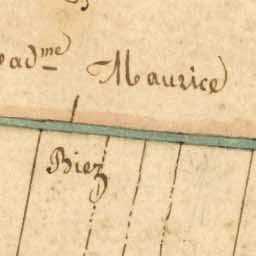 ad.me Maurice
Biez